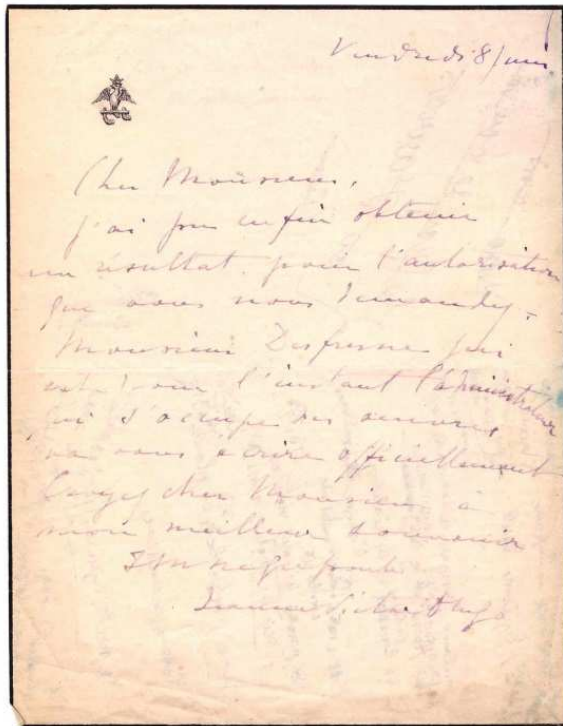 Vendredi 8 juin
Cher Monsieur,
j'ai pu enfin obtenir
un résultat pour l'autorisation
que vous nous demandez.
Monsieur Desfresnes qui
est pour l'instant l'administrateur
qui s'occupe des oeuvres
va vous écrire officiellement
Croyez cher Monsieur à
mon meilleur souvenir
Jeanne Victor Hugo